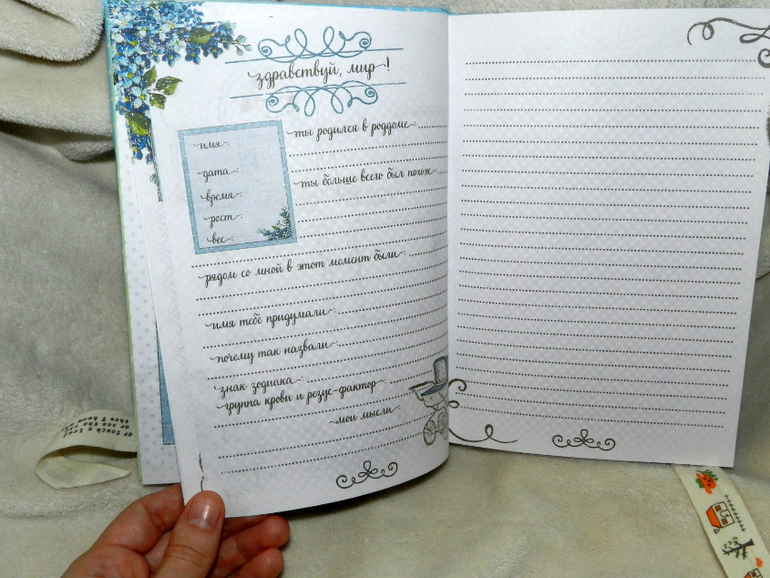 здравствуй, мир!
имя:
дата:
время:
рост:
вес:
ты родился в роддоме:
ты больше всего был похож:
рядом со мной в этот момент были:
имя тебе придумали:
почему так назвали:
знак зодиака:
группа крови и резус-фактор
мои мысли